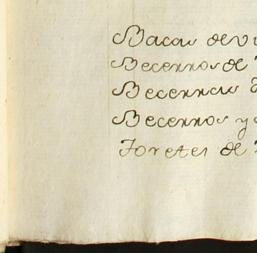 Bacas de vi
Becerros de
Becerras d
Becerros y
Toretes de